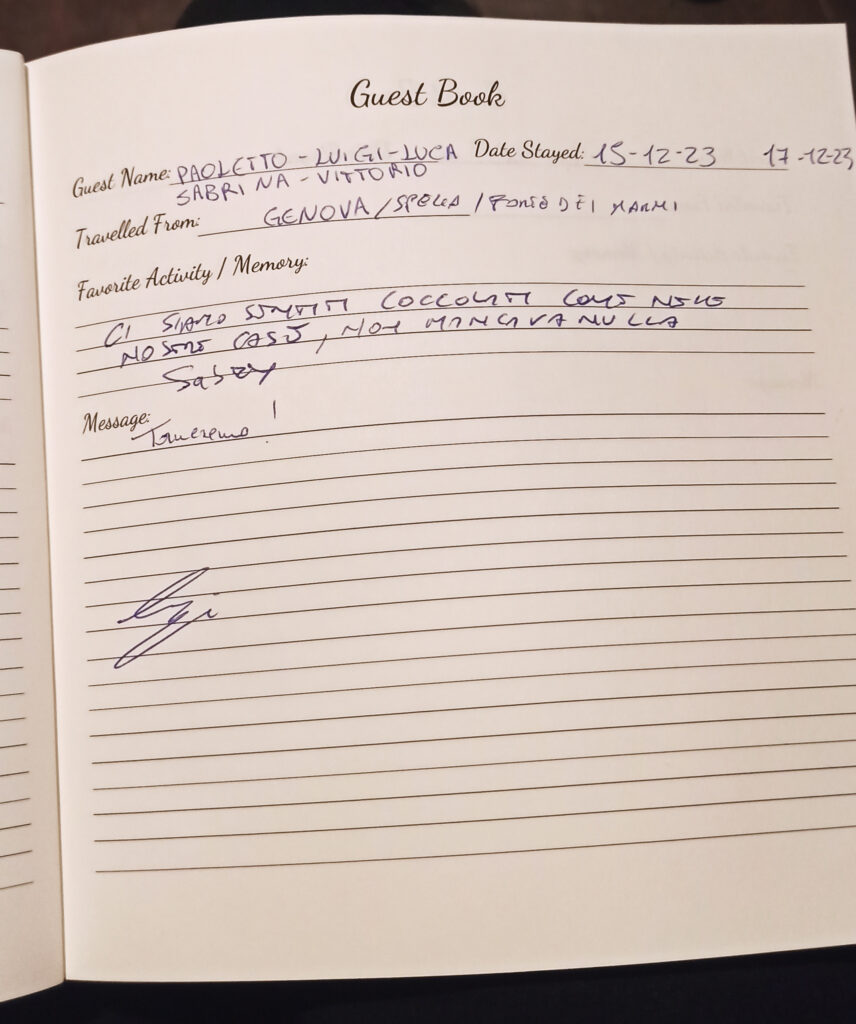 Guest Book
Guest Name: PAOLETTO - LUIGI - LUCA Date Stayed: 15-12-23 17-12-23
SABRINA - VITTORIO
Travelled From: GENOVA / SPEZIA / FORTE DEI MARMI
Favorite Activity / Memory:
CI SIAMO SENTITI COCCOLATI COME NELLE
NOSTRE CASE, NON MANCAVA NULLA
Message:
Torneremo!